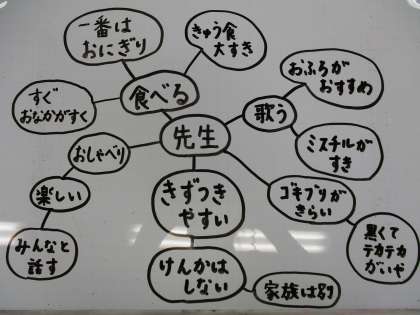 一番は
おにぎり
きゅう食
大すき
おふろが
おすすめ
食べる
すぐ
おなかがすく
歌う
先生
ミスチルが
すき
おしゃべり
楽しい
きずつき
やすい
ゴキブリが
きらい
みんなと
話す
黒くて
テカテカ
がいや
けんかは
しない
家族は別